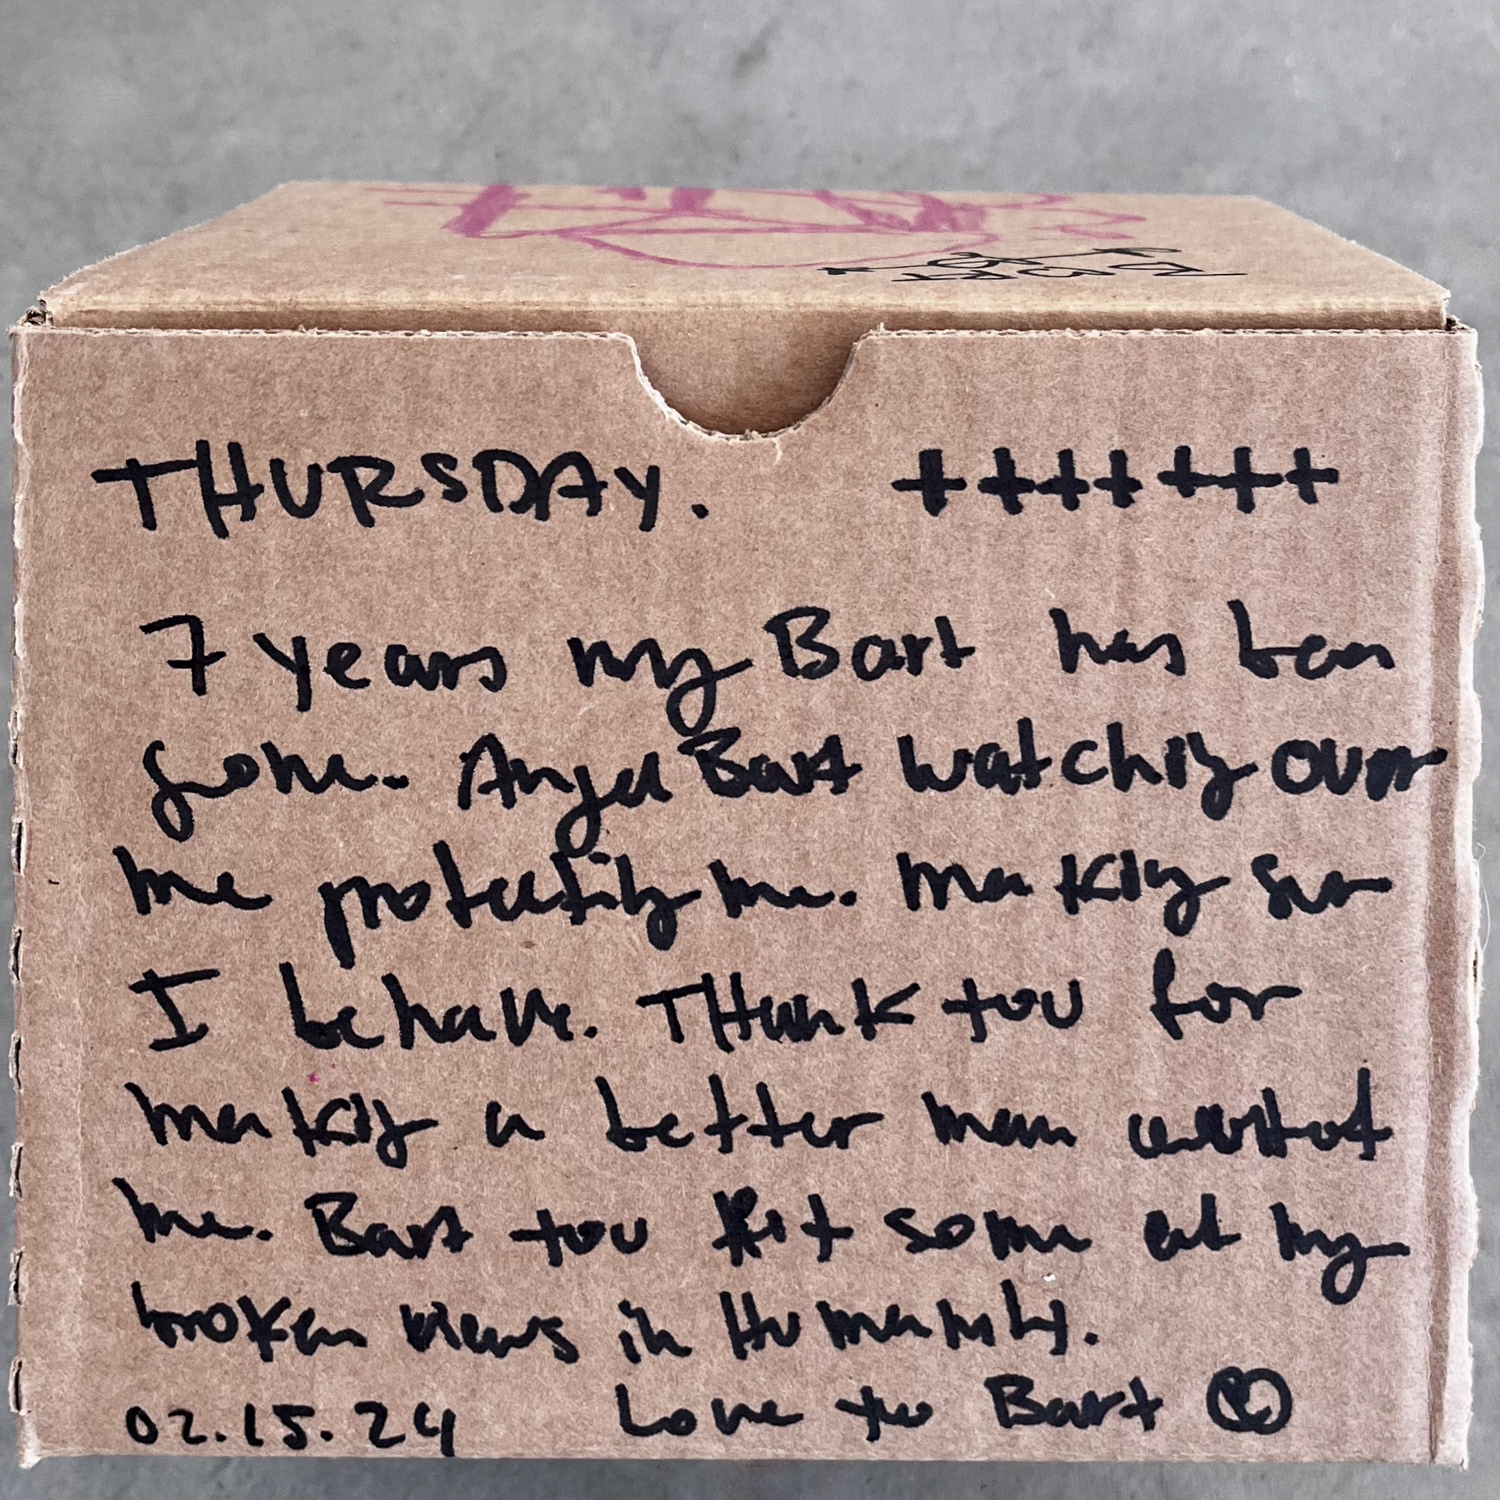 THURSDAY. +++++++
7 years my Bart has been
gone. Angel Bart watching over
me protecting me. Making sure
I behave. THank you for
making a better man without
me. Bart you fix some of my
broken views in Humanity.
02.15.24 Love you Bart